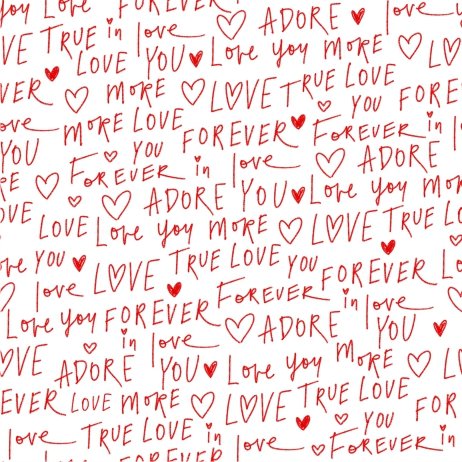 ADORE love
VE TRUE in love Love you MORE LOV
LOVE YOU TRUE LOVE
VER MORE LOVE YOU FOREV
ove MORE LOVE FOREVER FOREVER in
YOU FOREVER YOU in love ADORE
RE ADORE YOU Love you mo
OVE LOVE Love you MORE LOVE TRUE LOV
ove YOU LOVE TRUE LOVE YOU FOREVER Lo
love FOREVER FOREVER in love
Love you in love ADORE YOU
OVE ADORE YOU Love you MORE LOV
EVER LOVE MORE LOVE TRUE LOVE FOREV
love TRUE LOVE in love FOREVER YOU in